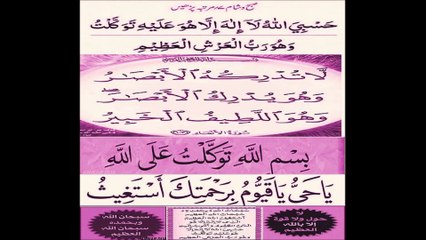 صبح و شام ۷ مرتبہ پڑھیں
حَسْبِيَ اللّٰهُ لَآ اِلٰهَ اِلَّا هُوَ عَلَيْهِ تَوَكَّلْتُ
وَهُوَ رَبُّ الْعَرْشِ الْعَظِيْمِ
لَا تُدْرِكُهُ الْأَبْصَارُ
وَهُوَ يُدْرِكُ الْأَبْصَارَ
وَهُوَ اللَّطِيفُ الْخَبِيرُ
بِسْمِ اللَّهِ تَوَكَّلْتُ عَلَى اللَّهِ
يَا حَيُّ يَا قَيُّومُ بِرَحْمَتِكَ أَسْتَغِيثُ
سبحان الله
وبحمده
سبحان الله
العظيم
حول ولا قوة
إلا بالله
العظيم